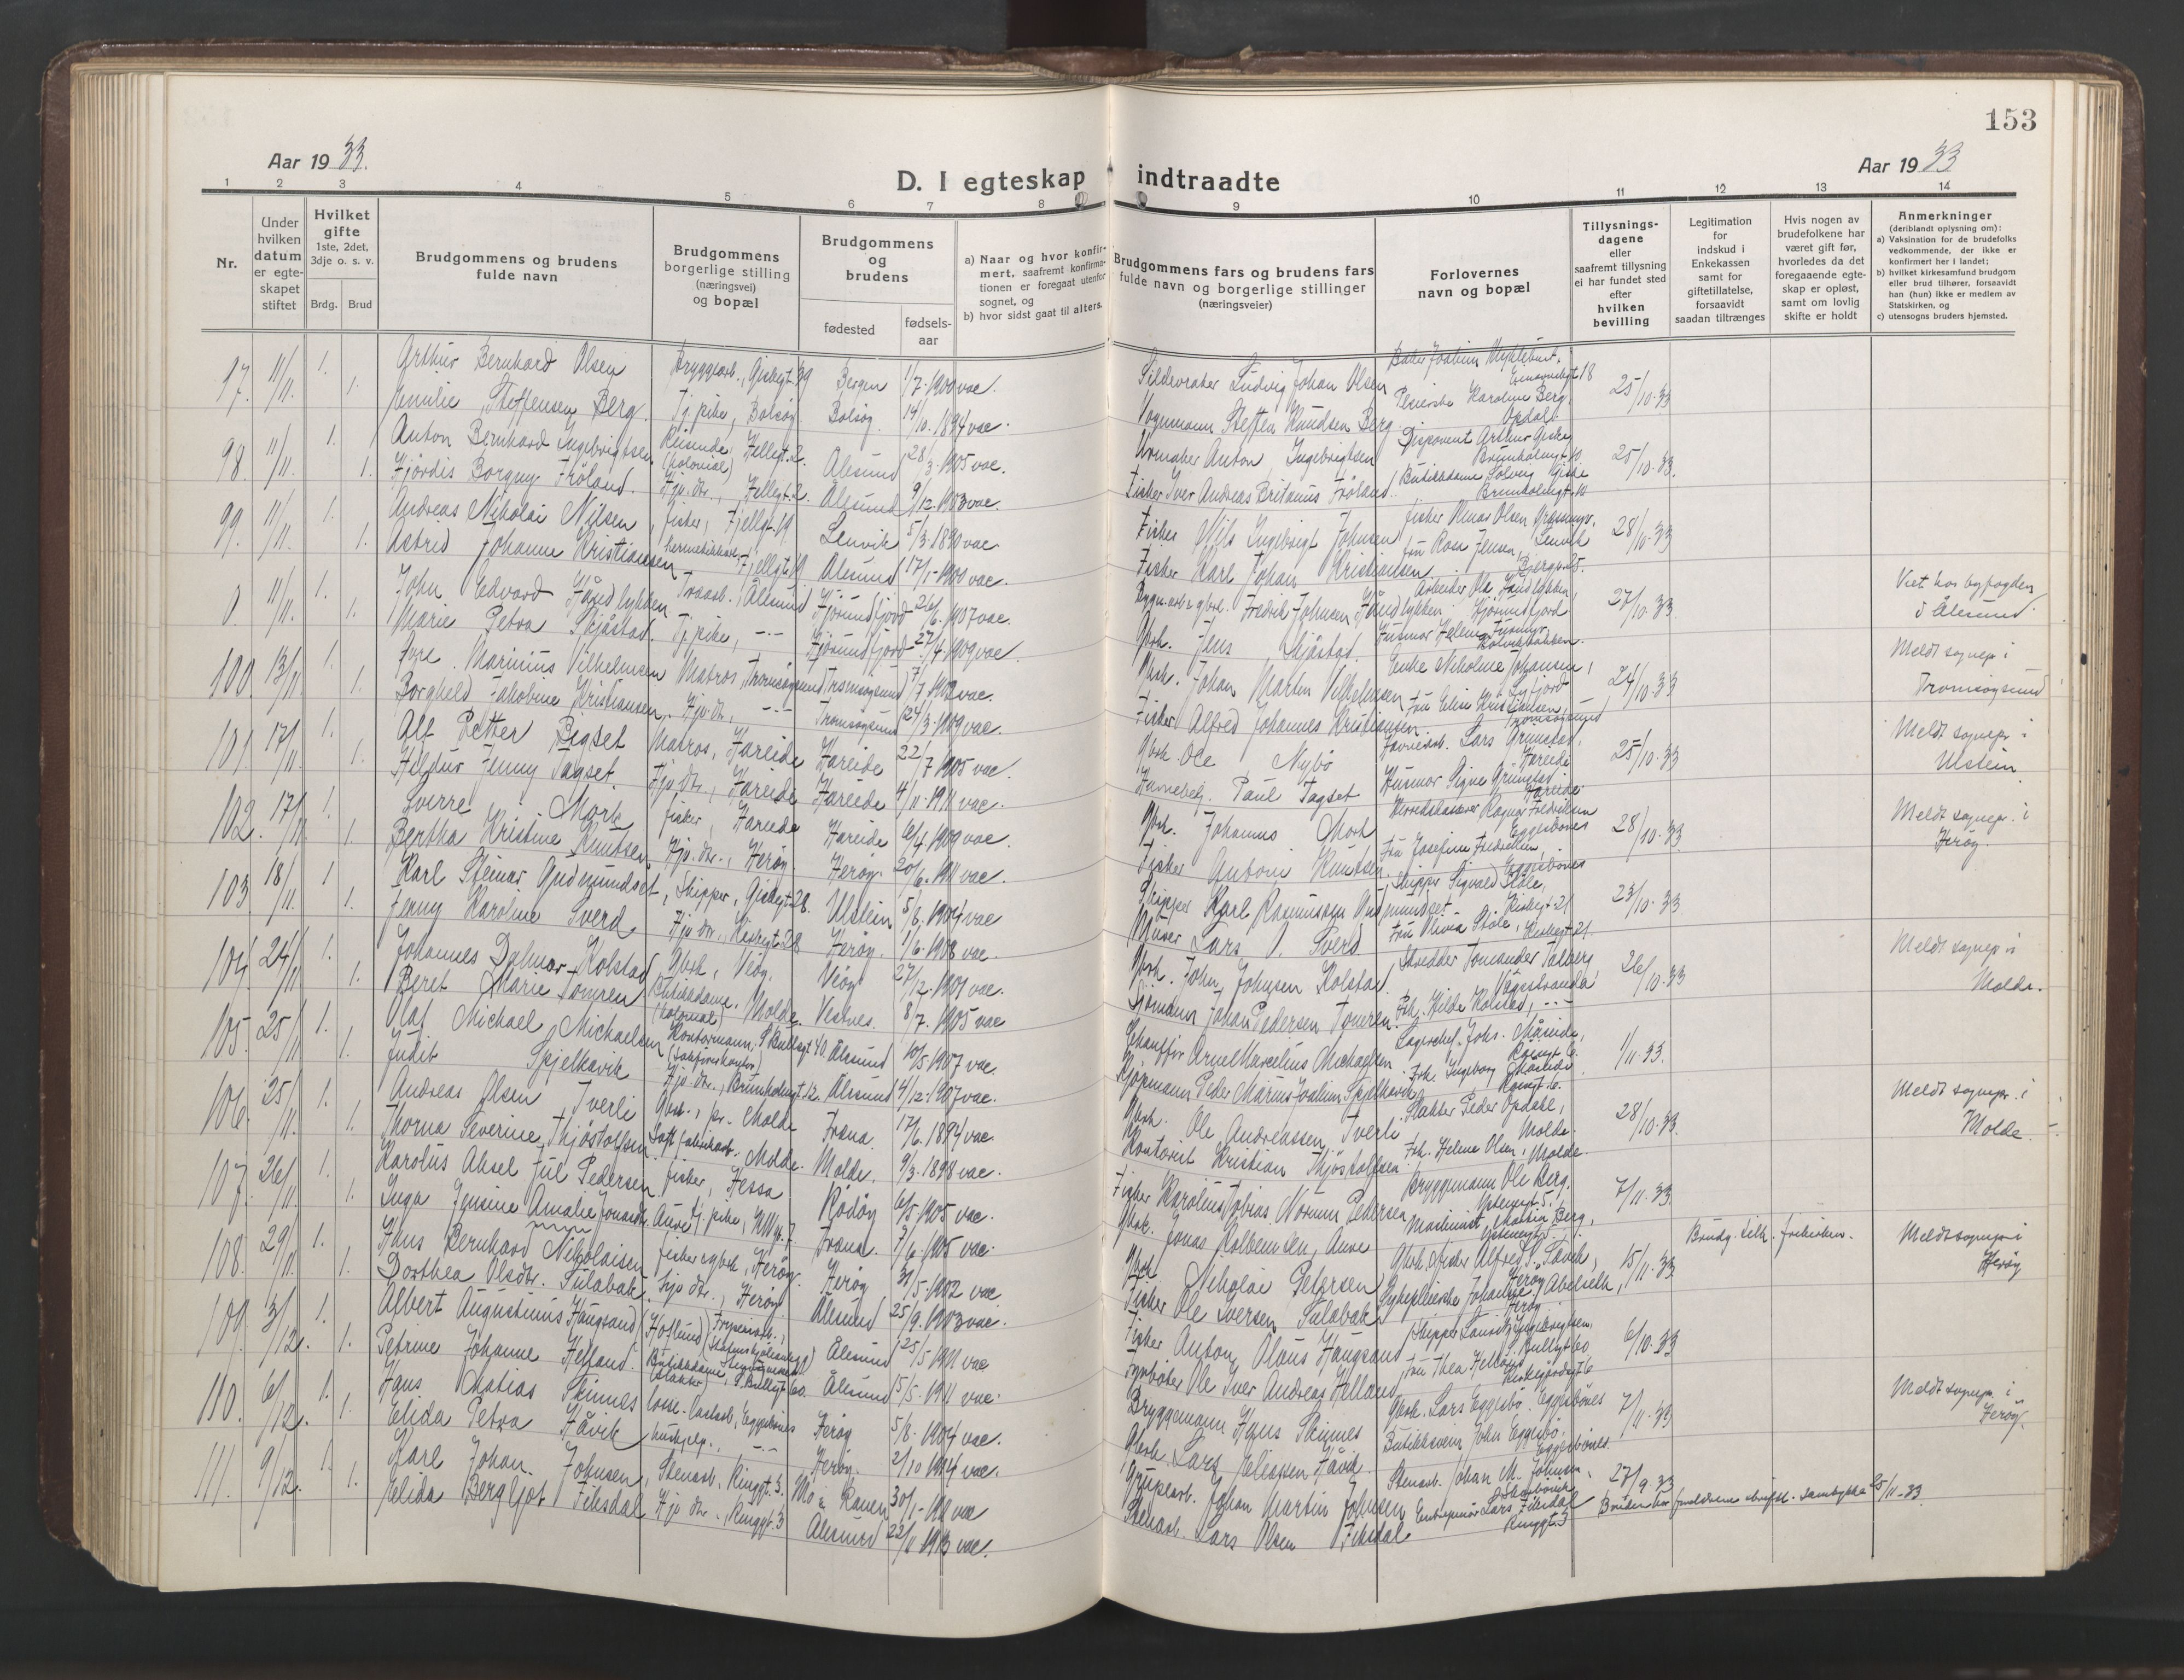 153
Aar 1933.
Aar 1933
D. I egteskap indtraadte
1 2 3 4 5 6 7 8 9 10 11 12 13 14
Nr.
Under hvilken datum er egteskapet stiftet
Hvilket gifte
1ste, 2det, 3dje o. s. v.
Brdg. Brud
Brudgommens og brudens fulde navn
Brudgommens borgerlige stilling (næringsvei) og bopæl
Brudgommens og brudens
fødested
fødsels-aar
a) Naar og hvor konfirmert, saafremt konfirmationen er foregaat utenfor sognet, og
b) hvor sidst gaat til alters.
Brudgommens fars og brudens fars fulde navn og borgerlige stillinger (næringsveier)
Forlovernes navn og bopæl
Tillysningsdagene eller saafremt tillysning ei har fundet sted efter hvilken bevilling
Legitimation for indskud i Enkekassen samt for giftetillatelse, forsaavidt saadan tiltrænges
Hvis nogen av brudefolkene har været gift før, hvorledes da det foregaaende egteskap er opløst, samt om lovlig skifte er holdt
Anmerkninger
(deriblandt oplysning om):
a) Vaksination for de brudefolks vedkommende, der ikke er konfirmert her i landet;
b) hvilket kirkesamfund brudgom eller brud tilhører, forsaavidt han (hun) ikke er medlem av Statskirken, og
c) utensogns bruders hjemsted.
97. 11/11. 1. Arthur Bernhard Olsen Bryggearb., Giskegt. 39 Bergen 1/7-1900 vac. Sildevraker Ludvig Johan Olsen Baker Joakim Myklebust, 18 25/10-33
1. Emilie Steffensen Berg. Tj. pike, Bolsöy Bolsöy. 14/10.1894 vac. Vognmann Steffen Knudsen Berg Pleierske Karoline Berg, Opdal.
98. 11/11. 1. Anton Bernhard Ingebrigtsen Reisende, (kolonial) Hellegt. 2. Ålesund 28/3.1905 vac. Urmaker Anton Ingebrigtsen Disponent Arthur Giske, Brunholmgt. 10 25/10.33.
1. Hjördis Borgny Fröland. Hjv. dtr., Hellegt. 2. Ålesund 9/12.1903 vac. Fisker Iver Andreas Britanus Fröland. Butikkdame Solveig Giske Brunholmgt. 10
99. 11/11. 1. Andreas Nikolai Nilsen, fisker, Fjellgt. 19. Lenvik 5/3.1890 vac. Fisker Nils Ingebrigt Johnsen fisker Olmar Olsen Lenvik 28/10.33
1. Astrid Johanne Kristiansen hermetikkarb., Fjellgt. 19 Ålesund 17/1-1900 vac. Fisker Karl Johan Kristiansen. Fru Rosa Jensen, 25.
0. 11/11. 1. John Edvard Håndlykken Træarb., Ålesund Hjörundfjord 26/6.1907 vac. Bygn.arb. & gbrk. Fredrik Johnsen Håndlykken Arbeider Ola Håndlykken, Hjörundfjord 27/10.33 Viet hos byfogden i Ålesund
1. Marie Petra Skjåstad. Tj. pike, -"- Hjörundfjord 27/4.1909 vac. Gbrk. Jens Skjåstad. Husmor Helene
100. 13/11. 1. Marinius Vilhelmsen Matros, Tromsøysund Tromsøysund 7/7.1902 vac. Gbrk. Johan Martin Vilhelmsen Enke Nikoline Johansen, 24/10.33 Meldt sognepr. i Tromsøysund
1. Borghild Jakobine Kristiansen. Hjv. dtr., -"- Tromsøysund 24/3.1909 vac. Fisker Alfred Johannes Kristiansen. Fru Elise Kristiansen, Tromsøysund
101. 17/11. 1. Alf Petter Bigset Matros, Hareide Hareide 22/7 1905 vac. Gbrk. Ole Nybö Lars Grimstad, Hareide 25/10.33 Meldt sognepr. i Ulstein
1. Hildur Jenny Tagset. Hjv. dtr., Hareide Hareide 4/11-1911 vac. Paul Tagset Husmor Signe Grimstad Hareide
102. 17/11 1. Sverre Mork fisker, Hareide Hareide 6/4.1909 vac. Gbrk. Johannes Mork Herredskasserer Ragnar Fredriksen Eggesbönes 28/10.33 Meldt sognepr. i Heröy.
1. Bertha Kristine Knutsen Hjv. dtr., Heröy Heröy. 20/6.1911 vac. Fisker Antoni Knutsen. Fru Josefine Fredriksen, Eggesbönes
103. 18/11. 1 Karl Steinar Gudmundset, Skipper, Giskegt. 28. Ulstein 5/6.1904 vac Skipper Karl Rasmussen Gudmundset Skipper Sigvald Støle, Kirkegt. 21 23/10.33
1. Jenny Karoline Sverd Hjv. dtr., Kirkegt. 28 Heröy. 1/6.1908 vac. Murer Lars O. Sverd Fru Olivia Støle, Kirkegt. 21
104. 24/11 1. Johannes Dalmar Kolstad Gbrk., Veöy. Veöy 27/12.1901 vac. Gbrk. John Johnsen Kolstad. Skredder Tomander Talberg Vågstranda 26/10.33 Meldt sognepr. i Molde.
1. Beret Marie Tomren Butikkdame. (kolonial) Molde. Vestnes. 8/7.1905 vac Johan Pedersen Tomren. Frk. Hilda Kolstad, -"-
105. 25/11 1. Olaf Michael Michaelsen Kontormann. S. Bullsgt 40. Ålesund 10/5 1907 vac. Chauffør Arne Marcelius Michaelsen Lagersjef Johs. Måseide, 6. 1/11.33.
1. Judit Spjelkavik Hjv. dtr., Brunholmgt. 12. Ålesund 4/12.1907 vac. Kjöpmann Peder Marius Joakim Spjelkavik Frk. Ingeborg Måseide 6.
106. 25/11. 1. Andreas Olsen Tverli Gbrk., pr. Molde Fræna. 17/6.1894 vac. Gbrk. Ole Andreassen Tverli Slakter Peder Opdahl, Molde. 28/10.33. Meldt sognepr. i Molde
1. Thorna Severine Thjöstolfsen Molde. Molde. 9/3.1898 vac. Kontorist Kristian Thjöstolfsen Frk. Helene Olsen, Molde.
107. 26/11. 1. Karolus Aksel Jul Pedersen fisker, Hessa Rödöy 6/5.1905 vac. Fisker Karolius Tobias Norum Pedersen Bryggemann Ole Berg, 5. 7/11.33
1. Inga Jensine Amalie Jonasdtr. Aure Tj. pike, 7. Fræna. 7/6.1905 vac. Gbrk. Jonas Kolbensen, Aure Maskinist Berg,
108. 29/11 1. Hans Bernhard Nikolaisen fisker & gbrk, Heröy. Heröy 31/5.1902 vac Gbrk Nikolai Petersen Gbrk. & fisker Alfred P. Heröy 15/11.33 Brudg. tilh. frikirken. Meldt sognepr. i Heröy
1. Dorthea Olsdtr. Sulabak. Hjv. dtr., Heröy Ålesund 25/9.1903 vac. Fisker Ole Iversen Sulabak Sykepleierske Johanne Abelseth, Heröy
109. 3/12. 1. Albert Augustinus Haugsand (Hoflund) Ålesund 25/5 1901 vac Fisker Anton Olaus Haugsand Skipper Ingebrigtsen, S. Bullsgt 60 6/10.33
1. Petrine Johanne Helland. Butikkdame, S. Bullsgt 60. Ålesund 15/5.1911 vac. Ole Iver Andreas Helland Fru Thea Helland 6
110. 6/12. 1. Hans Matias Skinnes Eggesbönes Heröy 5/8.1904 vac. Bryggemann Hans Skinnes Gbrk. Lars Eggesbö. Eggesbönes 7/11.33 Meldt sognepr. i Heröy.
1. Elida Petra Håvik hushjelp., -"- Heröy. 2/10 1914 vac. Gbrk. Lars Eliassen Håvik Butikksvenn John Eggesbö, Eggesbönes.
111. 9/12. 1. Karl Johan Johnsen, Stenarb., Ringgt. 3. Mo i Ranen 30/1-1911 vac Johan Martin Johnsen Stenarb. Johan M. Johnsen, 27/9 33
1. Elida Bergljot Fiksdal Hjv. dtr., Ringgt. 3 Ålesund 22/11 1913 vac. Stenarb. Lars Olsen Fiksdal Entreprenör Lars Fiksdal Ringgt. 3 Bruden har foreldrene skriftl. samtykke 25/11-33.